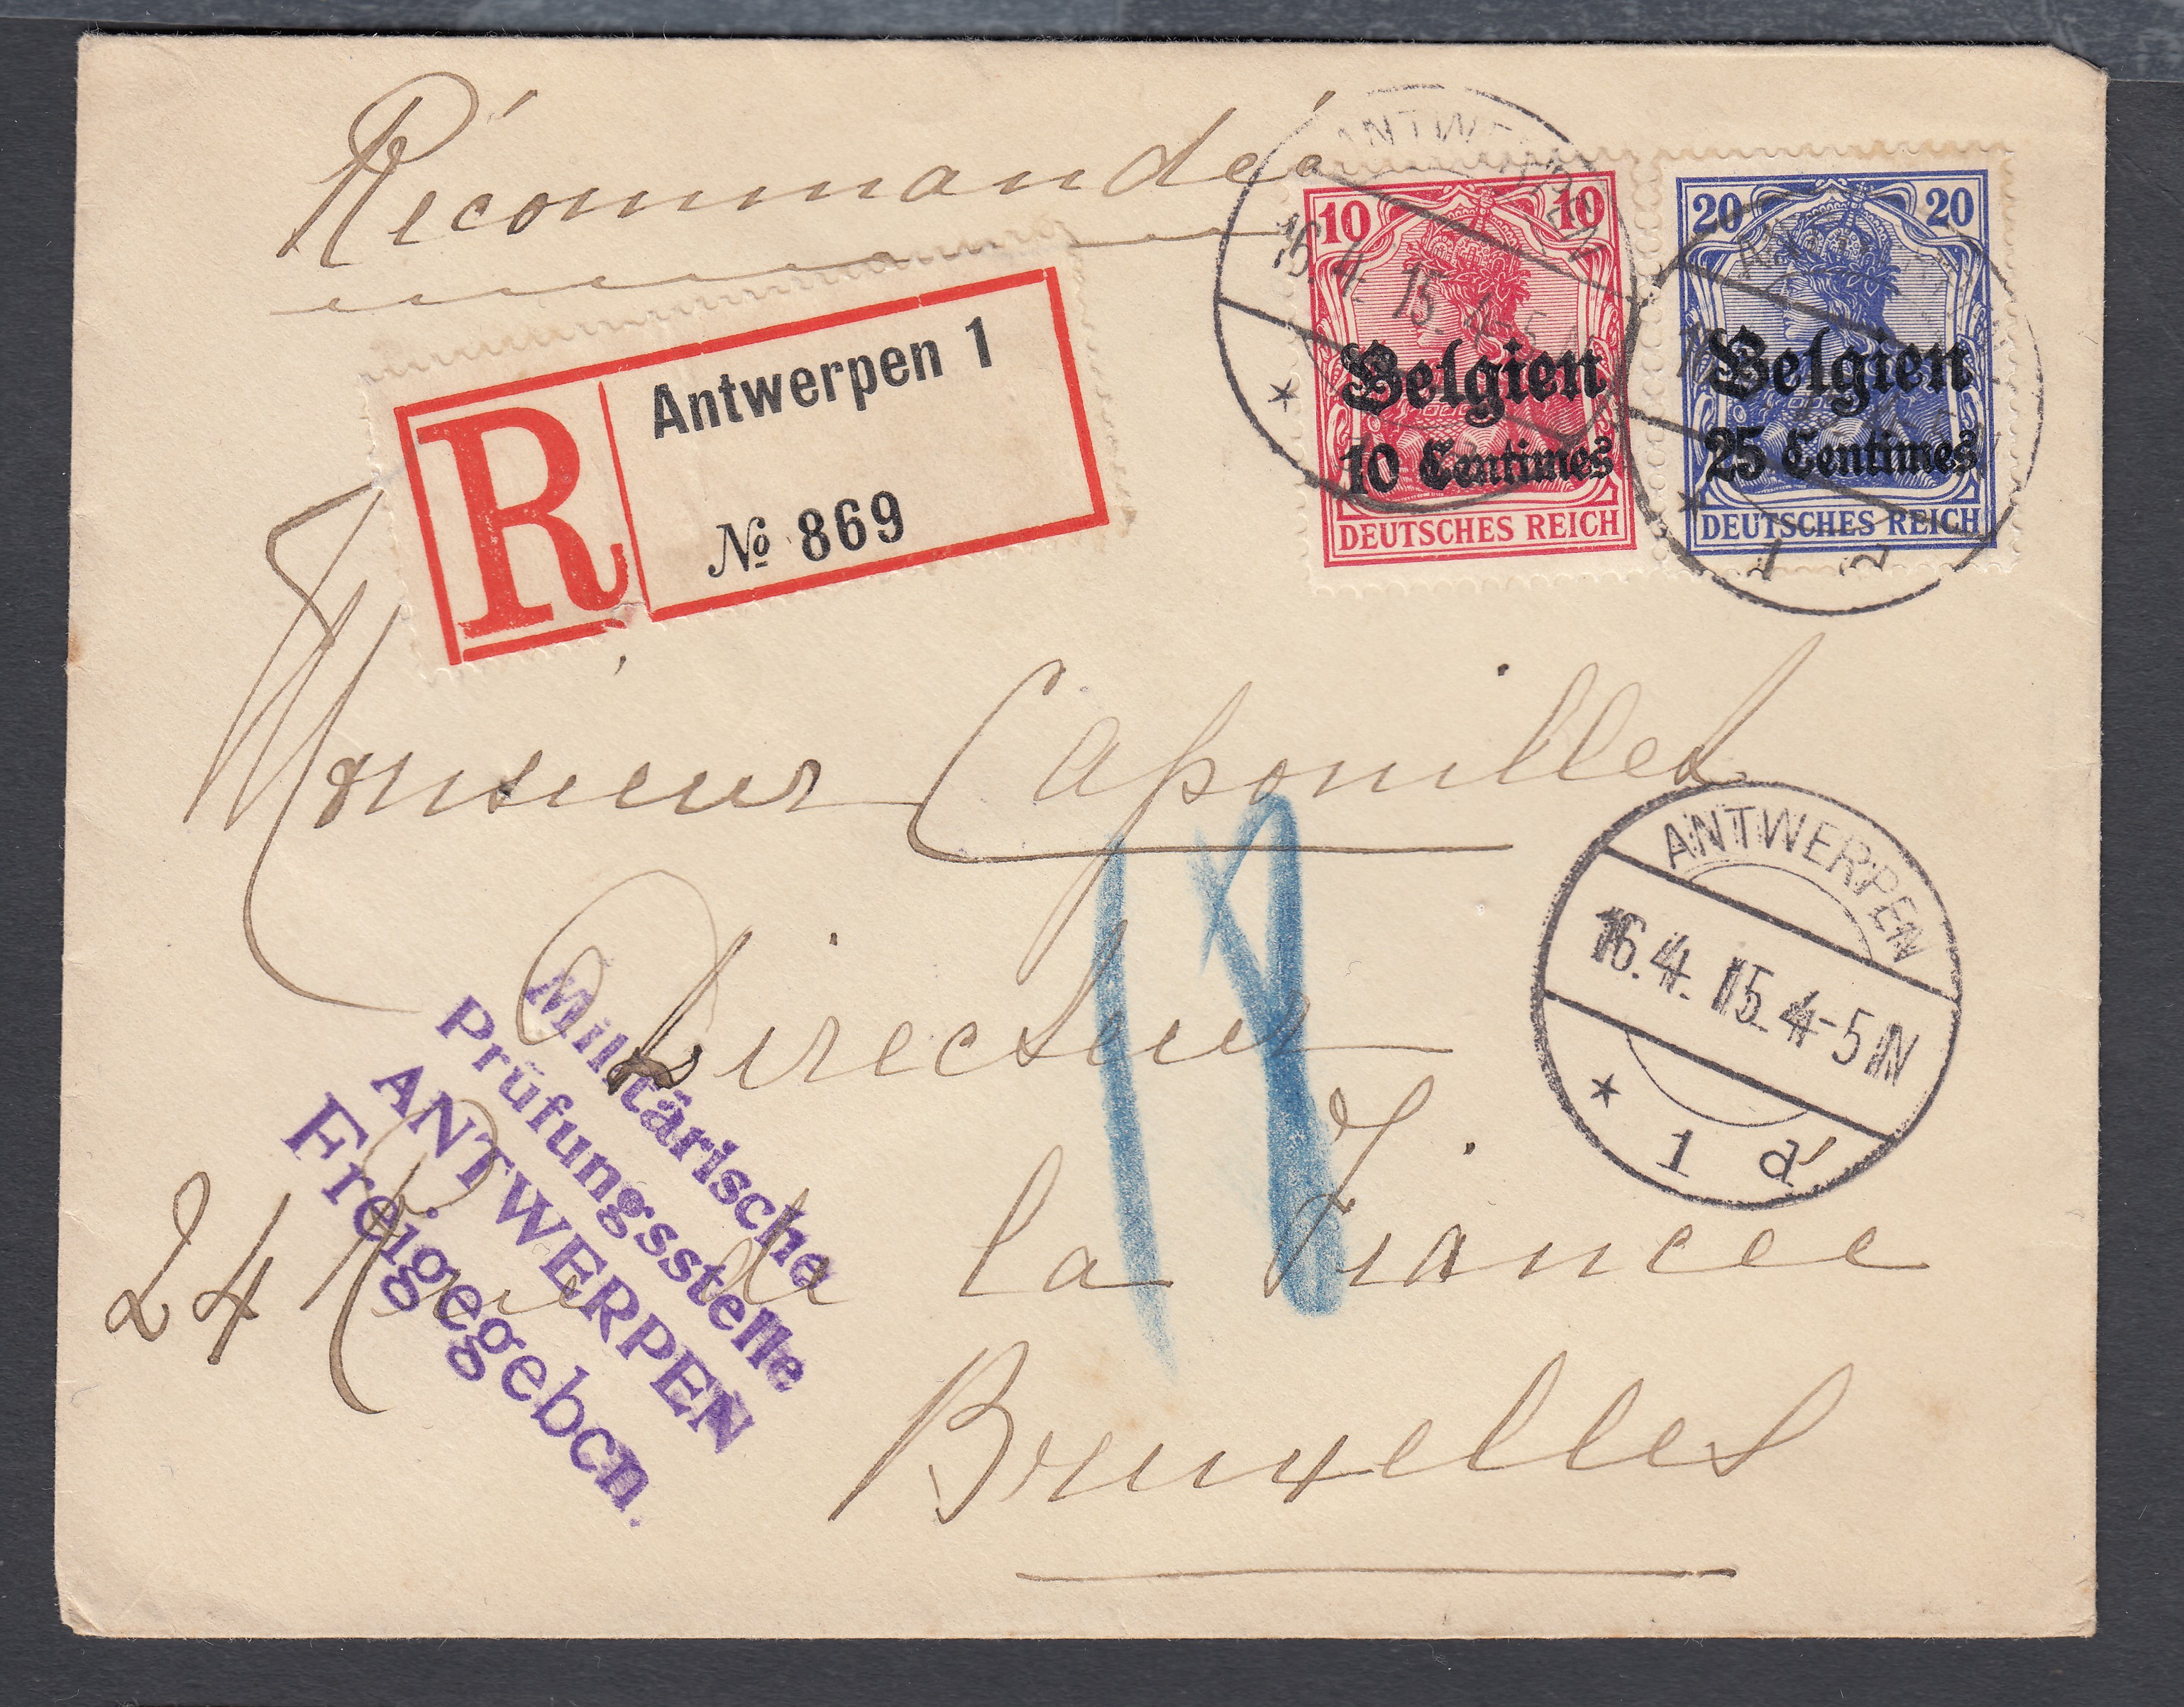 Récommandée
ANTWERPEN
16.4.15.4-5N
10 10
Belgien
10 Centimes
DEUTSCHES REICH
20 20
Belgien
25 Centimes
DEUTSCHES REICH
R Antwerpen 1
№ 869
Monsieur Capouillet
Directeur
24 Rue de la Fiancée
Bruxelles
ANTWERPEN
16.4.15.4-5N
* 1 d
Militärische
Prüfungsstelle
ANTWERPEN
Freigegeben.